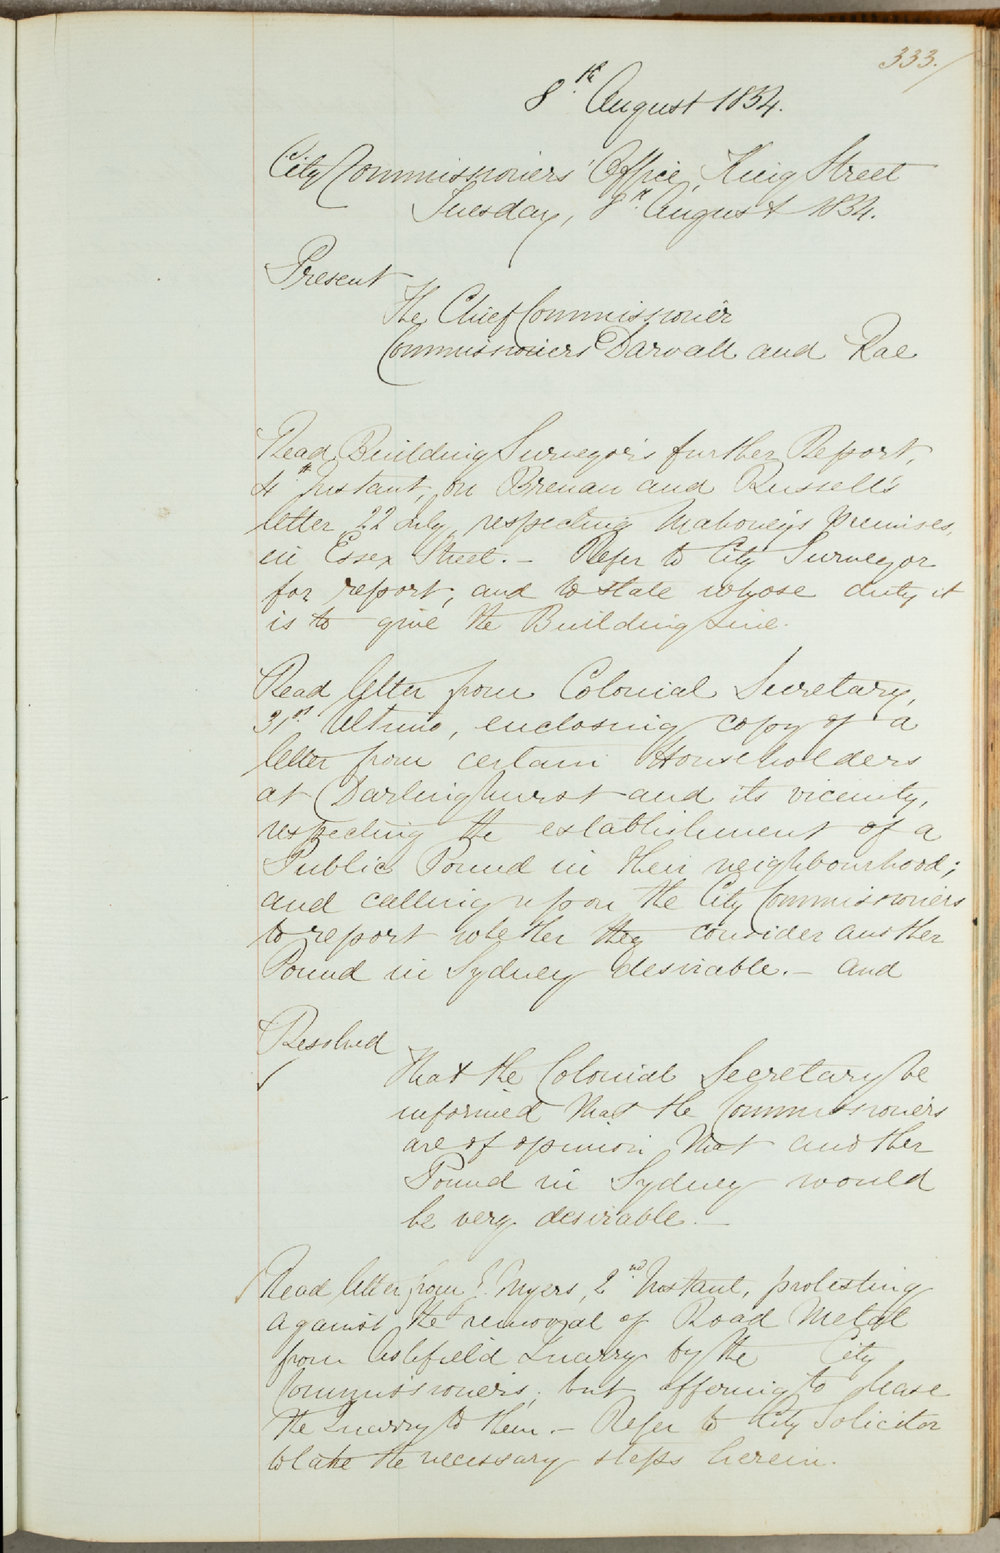 333.
8th August 1854.
City Commissioners' Office, King Street
Tuesday, 8th August 1854.
Present
The Chief Commissioner
Commissioners Darvall and Rae
Read Building Surveyor's further Report,
4th Instant, on Brenan and Russell's
letter 22 July, respecting Mahoney's premises,
in Essex Street. - Refer to City Surveyor
for report, and to state whose duty it
is to give the Building Line.
Read letter from Colonial Secretary,
31st Ultimo, enclosing copy of a
letter from certain Householders
at Darlinghurst and its vicinity,
respecting the establishment of a
Public Pound in their neighbourhood;
and calling upon the City Commissioners
to report whether they consider another
Pound in Sydney desirable. - and
Resolved
That the Colonial Secretary be
informed that the Commissioners
are of opinion that another
Pound in Sydney would
be very desirable. -
Read letter from Myers, 2nd Instant, protesting
against the removal of Road Metal
from Ashfield Quarry by the City
Commissioners; but offering to lease
the Quarry to them. - Refer to City Solicitor
to take the necessary steps herein.